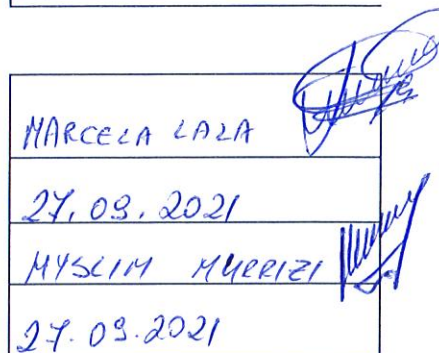 MARCELA LALA
27.09.2021
MYSLIM MURRIZI
27.09.2021